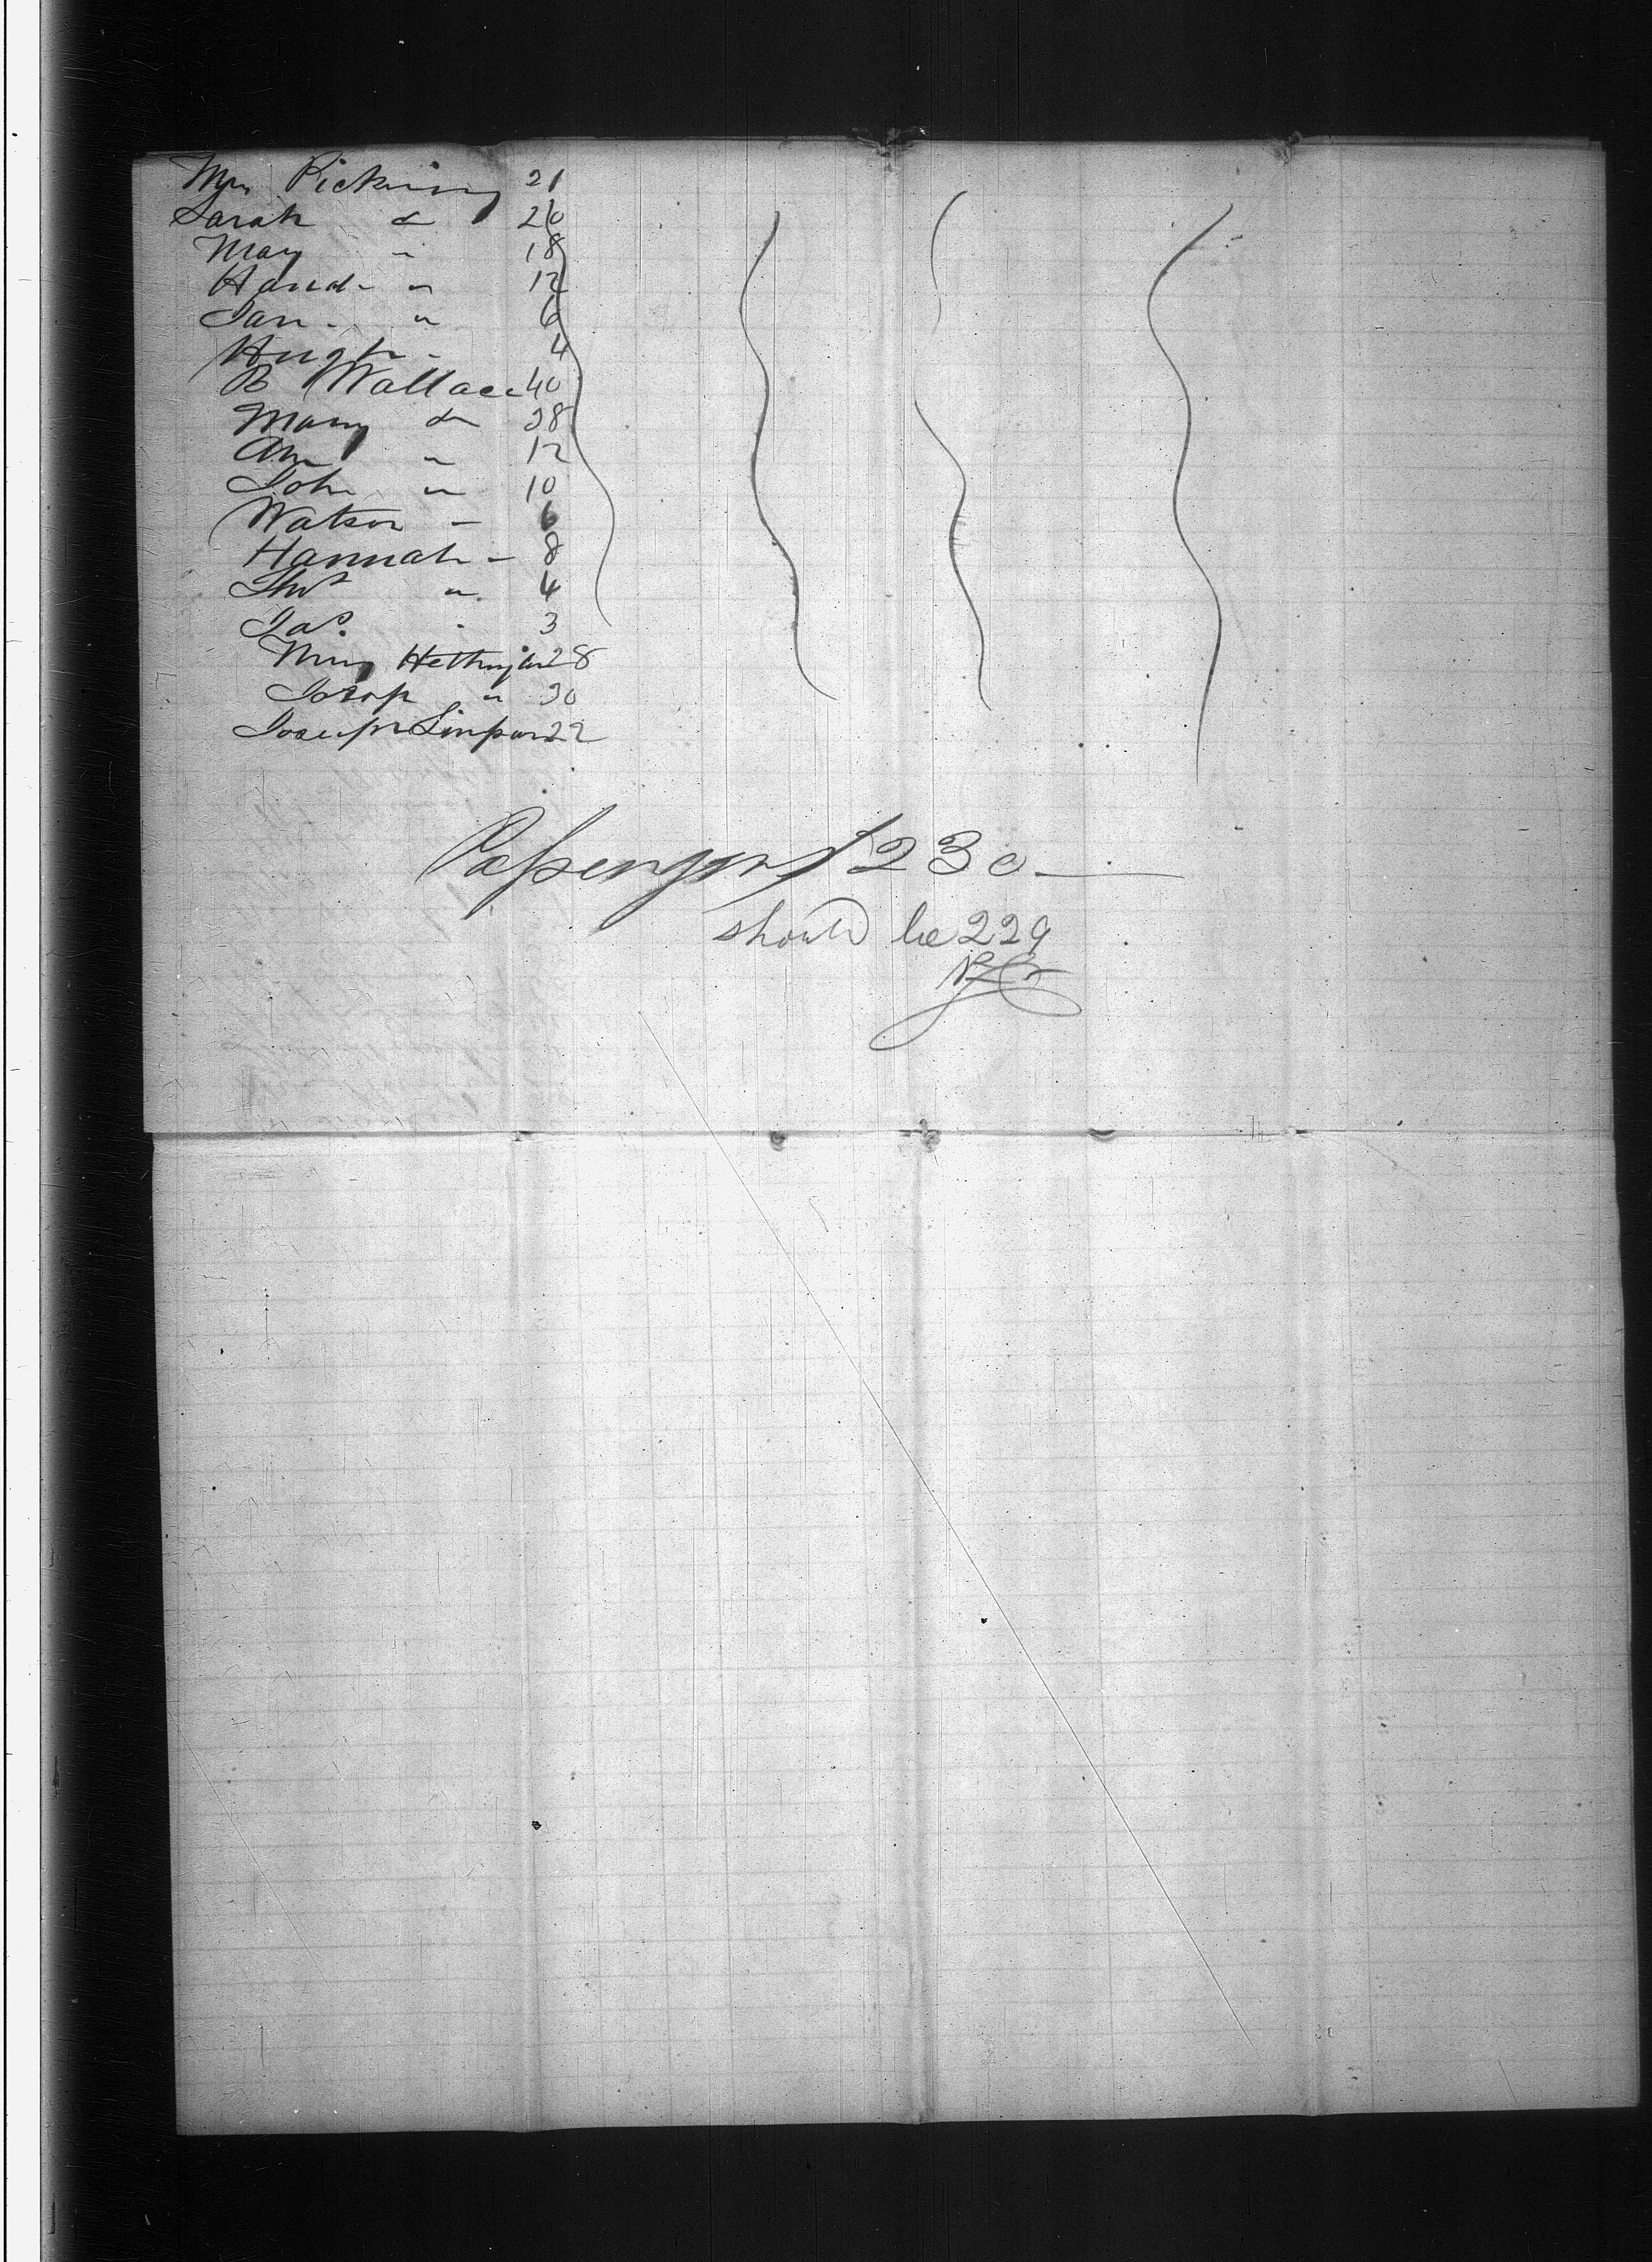 Mrs Pickering 21
Sarah do 26
Mary " 18
" 12
Jan " 6
Hugh - 4
R Wallace 40
Mary do 38
Ann " 12
John " 10
Watson - 6
Hannah - 8
Thos " 4
Jas 3
Hethington 28
Josep " 30
Joseph Simpson 22
Passengers 230
should be 229